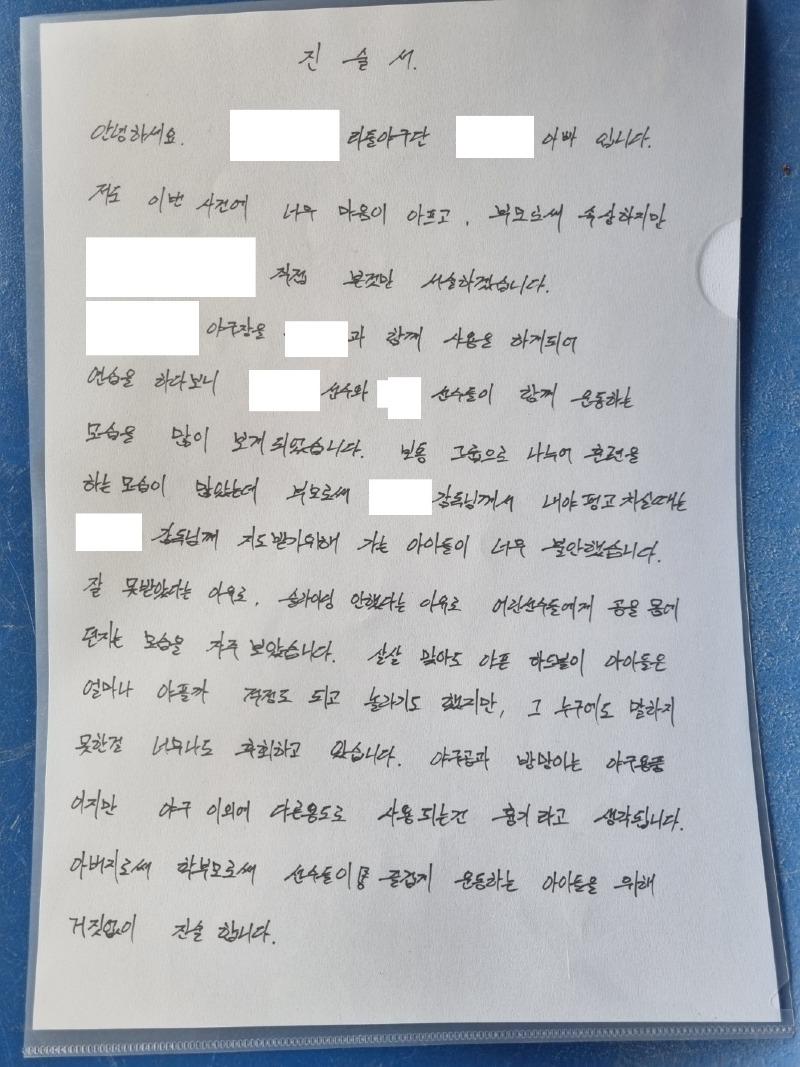 진 술 서.
안녕하세요. 리틀야구단 아빠 입니다.
저도 이번 사건에 너무 마음이 아프고, 부모로써 속상하지만
직접 본것만 서술하겠습니다.
야구장을 과 함께 사용을 하게되어
연습을 하다보니 선수와 선수들이 함께 운동하는
모습을 많이 보게되었습니다. 보통 그룹으로 나누어 훈련을
하는모습이 많았는데 부모로써 감독님께서 내야 펑고 치실때는
감독님께 지도받기위해 가는 아이들이 너무 불안했습니다.
잘 못받았다는 이유로, 슬라이딩 안했다는 이유로 어린선수들에게 공을 몸에
던지는 모습을 자주 보았습니다. 살살 맞아도 아픈 하드볼이 아이들은
얼마나 아플까 걱정도 되고 놀라기도 했지만, 그 누구에도 말하지
못한걸 너무나도 후회하고 있습니다. 야구공과 방망이는 야구용품
이지만 야구 이외에 다른용도로 사용되는건 흉기라고 생각됩니다.
아버지로써 학부모로써 선수들이 즐겁게 운동하는 아이들을 위해
거짓없이 진술 합니다.